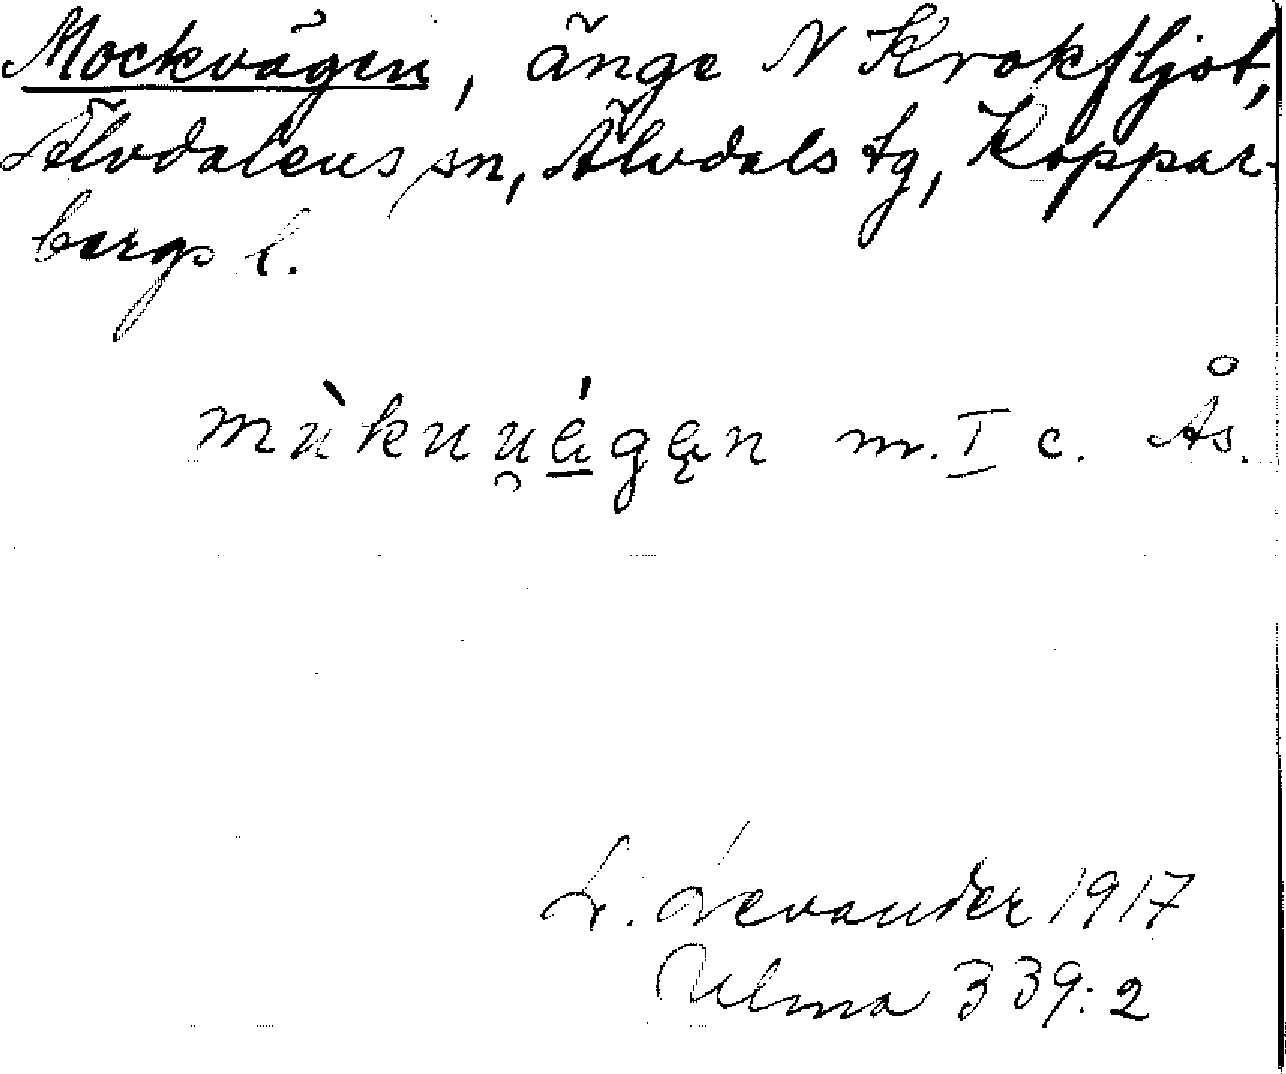 Mockvägen, änge N Krokfljot,
Älvdalens sn, Älvdals tg, Koppar-
bergs l.
mùknu̯ägęn m. I c. Ås.
L. Levander 1917
Ulma 339:2